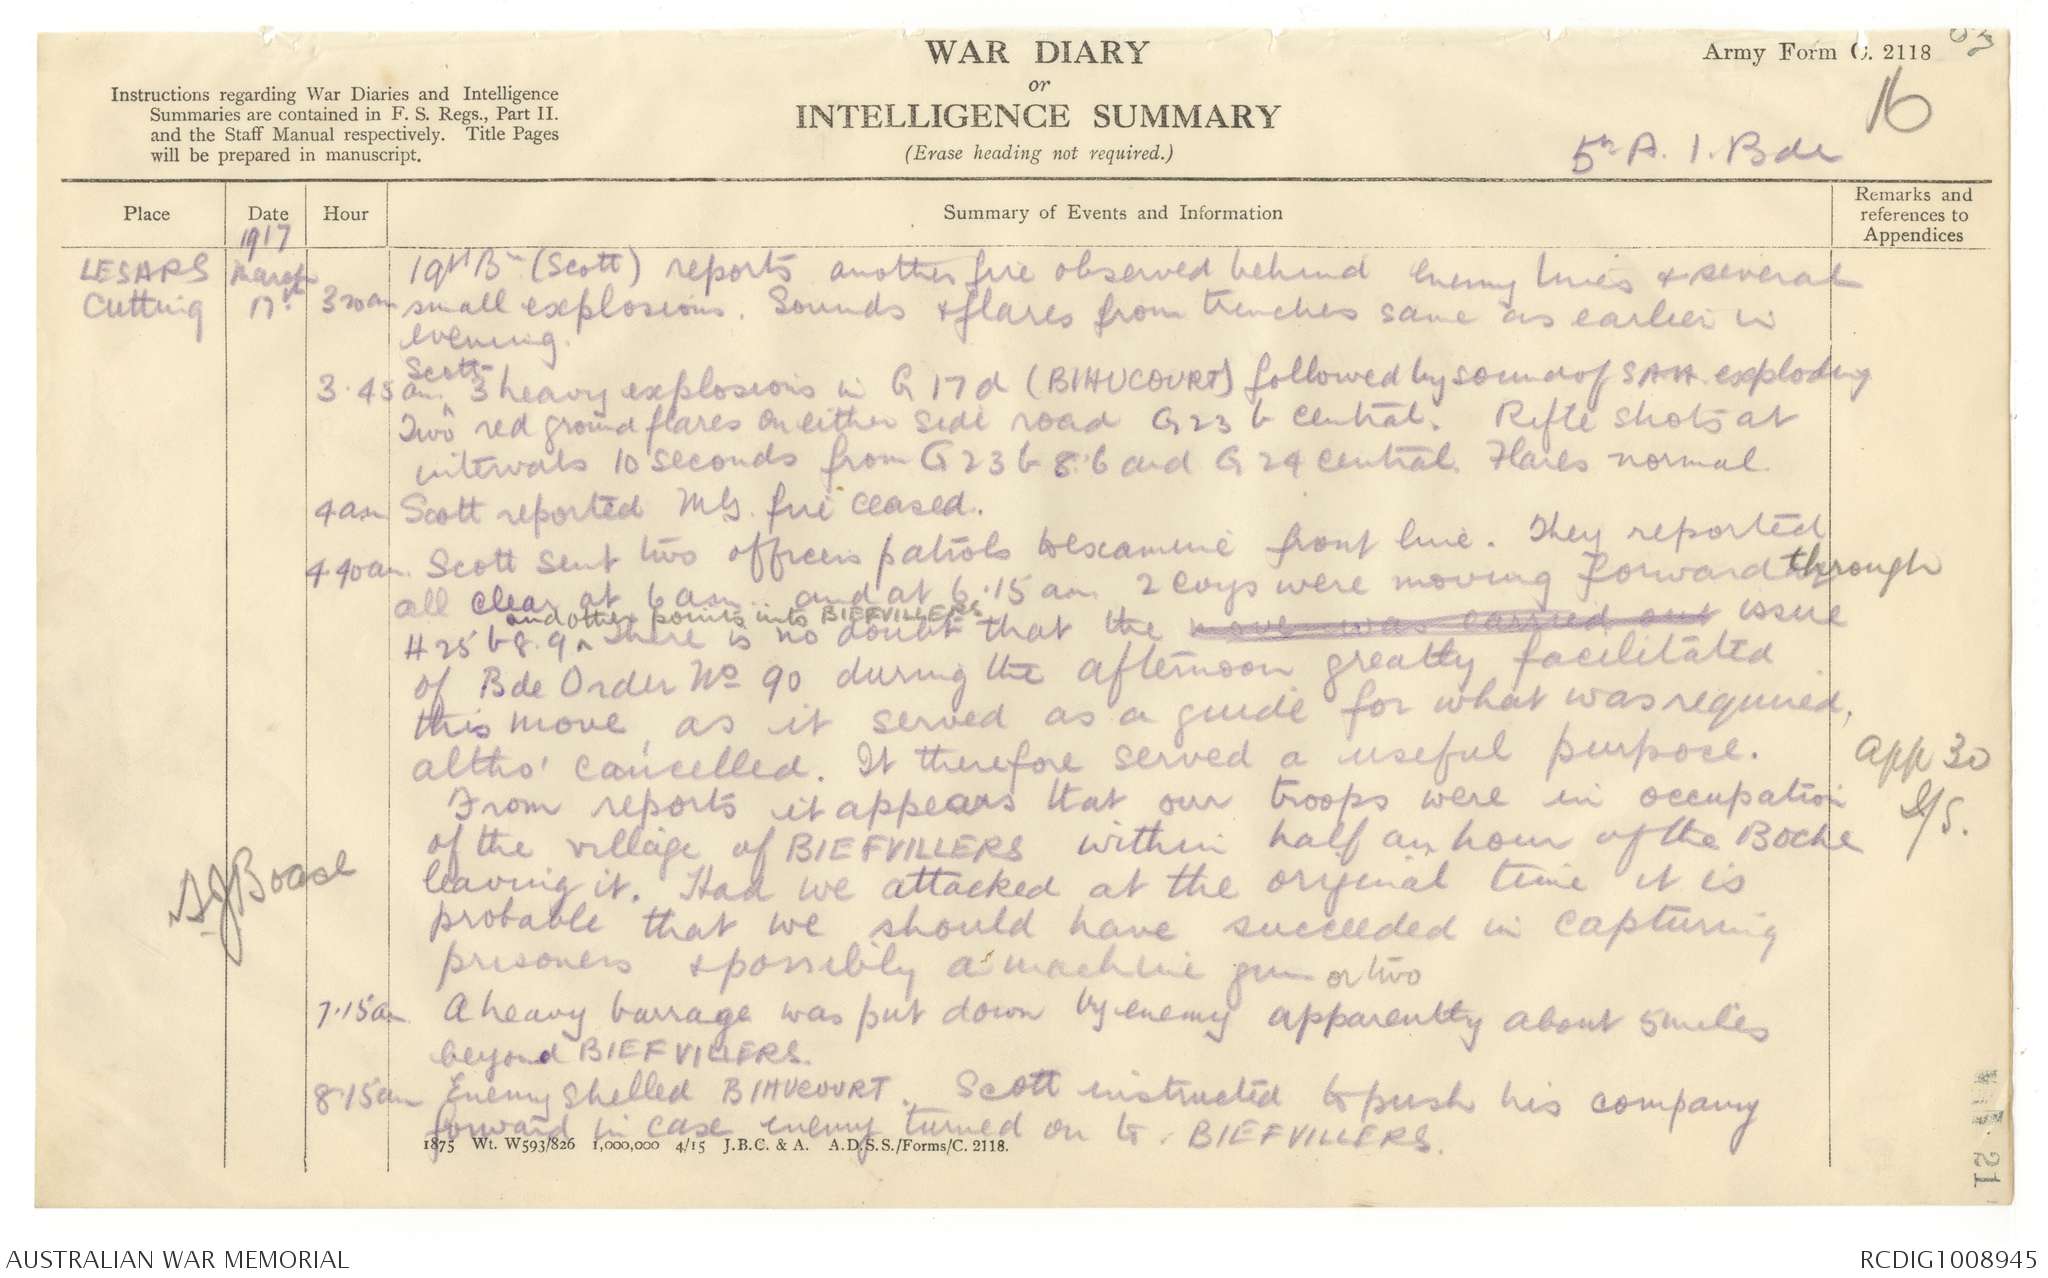 WAR DIARY
or
INTELLIGENCE SUMMARY
(Erase heading not required.)
Army Form C. 2118
16
5th A. I. Bde
Instructions regarding War Diaries and Intelligence
Summaries are contained in F. S. Regs., Part II.
and the Staff Manual respectively. Title Pages
will be prepared in manuscript.
Place
Date
Hour
Summary of Events and Information
Remarks and
references to
Appendices
1917
LESARS March 19th Bn (Scott) reports another fire observed behind Enemy lines & several
Cutting 17th 3 20am small explosions. Sounds & flares from trenches same as earlier in
evening.
Scott
3.45 am. 3 heavy explosions in G 17 d (BIHUCOURT) followed by sound of SAA exploding
Two red ground flares on either side road G 23 b central. Rifle shots at
intervals 10 seconds from G 23 b 8.6 and G 24 central. Flares normal
4 am Scott reported MG. fire ceased.
4.40am. Scott sent two officers patrols to examine front line. They reported
all clear at 6 am and at 6.15 am 2 coys were moving forward through
and other points into BIEFVILLERS
H 25 b 8.9 ^ There is no doubt that the move was carried out issue
of Bde Order No 90 during the afternoon greatly facilitated
this move, as it served as a guide for what was required,
altho' cancelled. It therefore served a useful purpose.
App 30
From reports it appears that our troops were in occupation
of the village of BIEFVILLERS within half an hour of the Boche
leaving it. Had we attacked at the original time it is
probable that we should have succeeded in capturing
prisoners & possibly a machine gun or two
7.15am A heavy barrage was put down by enemy apparently about 5 miles
beyond BIEFVILLERS.
8.15am Enemy shelled BIHUCOURT. Scott instructed to push his company
forward in case enemy turned on to BIEFVILLERS.
Boase
1875 Wt. W593/826 1,000,000 4/15 J.B.C. & A. A.D.S.S./Forms/C. 2118.
AUSTRALIAN WAR MEMORIAL
RCDIG1008945